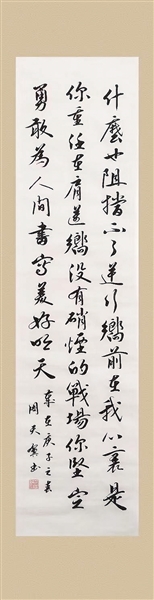 什麼也阻擋不了逆行嚮前在我心裏是
你重任在肩道嚮没有硝煙的戰場你堅定
勇敢為人間書寫美好明天
歲在庚子之春
周天